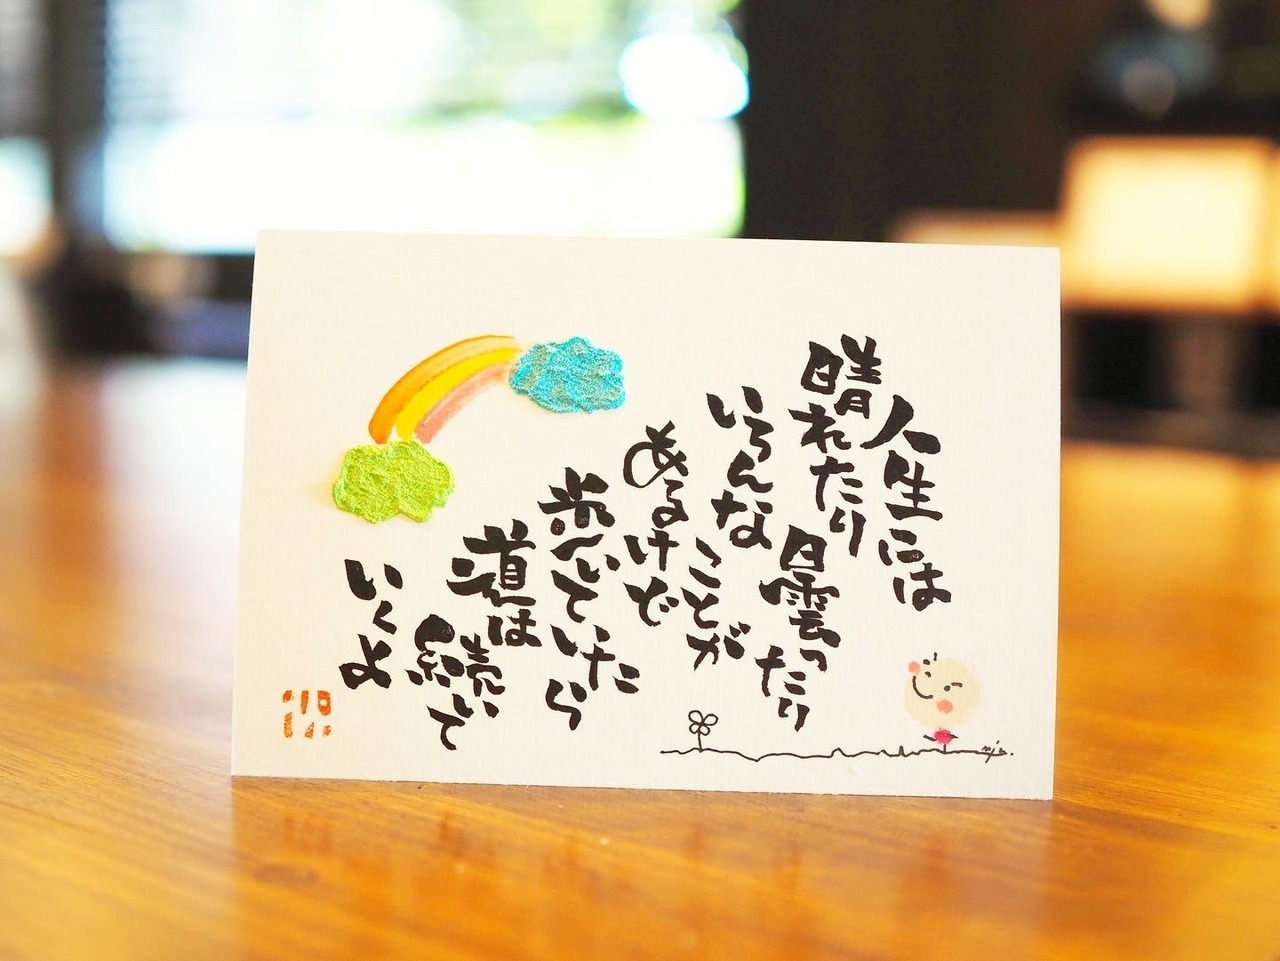 人生には
晴れたり曇ったり
いろんなことが
あるけど
歩いていたら
道は
続いて
いくよ